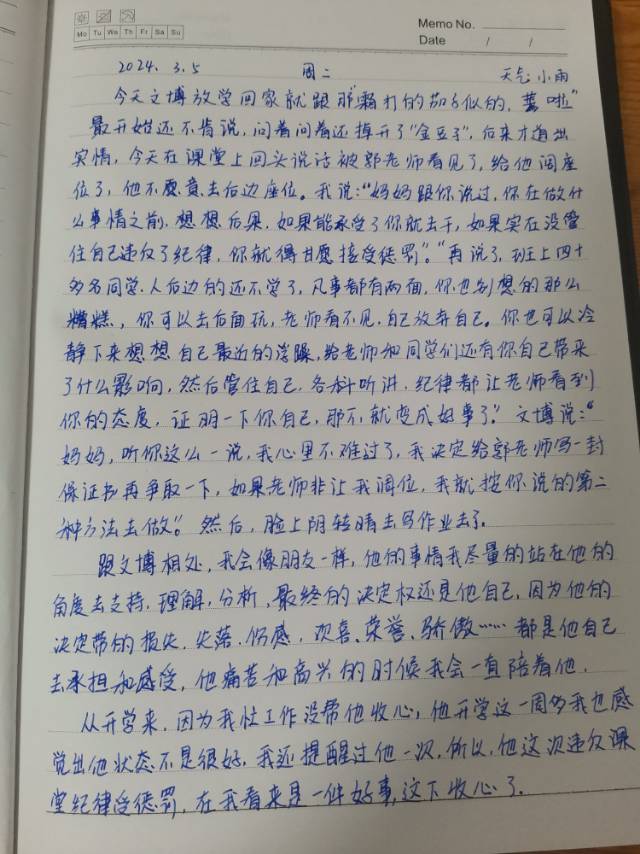 Memo No.
Mo Tu We Th Fr Sa Su
Date / /
2024. 3.5 周二 天气:小雨
今天文博放学回家就跟那霜打的茄子似的，蔫啦"
最开始还不肯说，问着问着还掉开了"金豆子"，后来才道出
实情，今天在课堂上回头说话被郭老师看见了，给他调座
位了，他不愿意去后边座位。我说："妈妈跟你说过，你在做什
么事情之前，想想后果，如果能承受了你就去干，如果实在没管
住自己违反了纪律，你就得甘愿接受惩罚"。"再说了，班上四十
多名同学，人后边的还不学了，凡事都有两面，你也别想的那么
糟糕，你可以去后面玩，老师看不见，自己放弃自己。你也可以冷
静下来想想自己最近的浮躁，给老师和同学们还有你自己带来
了什么影响，然后管住自己，各科听讲，纪律都让老师看到
你的态度，证明一下你自己，那不就变成好事了。"文博说："
妈妈，听你这么一说，我心里不难过了，我决定给郭老师写一封
保证书再争取一下，如果老师非让我调位，我就按你说的第二
种方法去做"。然后，脸上阴转晴去写作业去了。
跟文博相处，我会像朋友一样，他的事情我尽量的站在他的
角度去支持，理解，分析，最终的决定权还是他自己，因为他的
决定带的损失、失落、伤感，欢喜、荣誉、骄傲……都是他自己
去承担和感受，他痛苦和高兴的时候我会一直陪着他.
从开学来，因为我忙工作没帮他收心，他开学这一周多我也感
觉出他状态不是很好，我还提醒过他一次，所以，他这次违反课
堂纪律受惩罚，在我看来是一件好事，这下收心了.